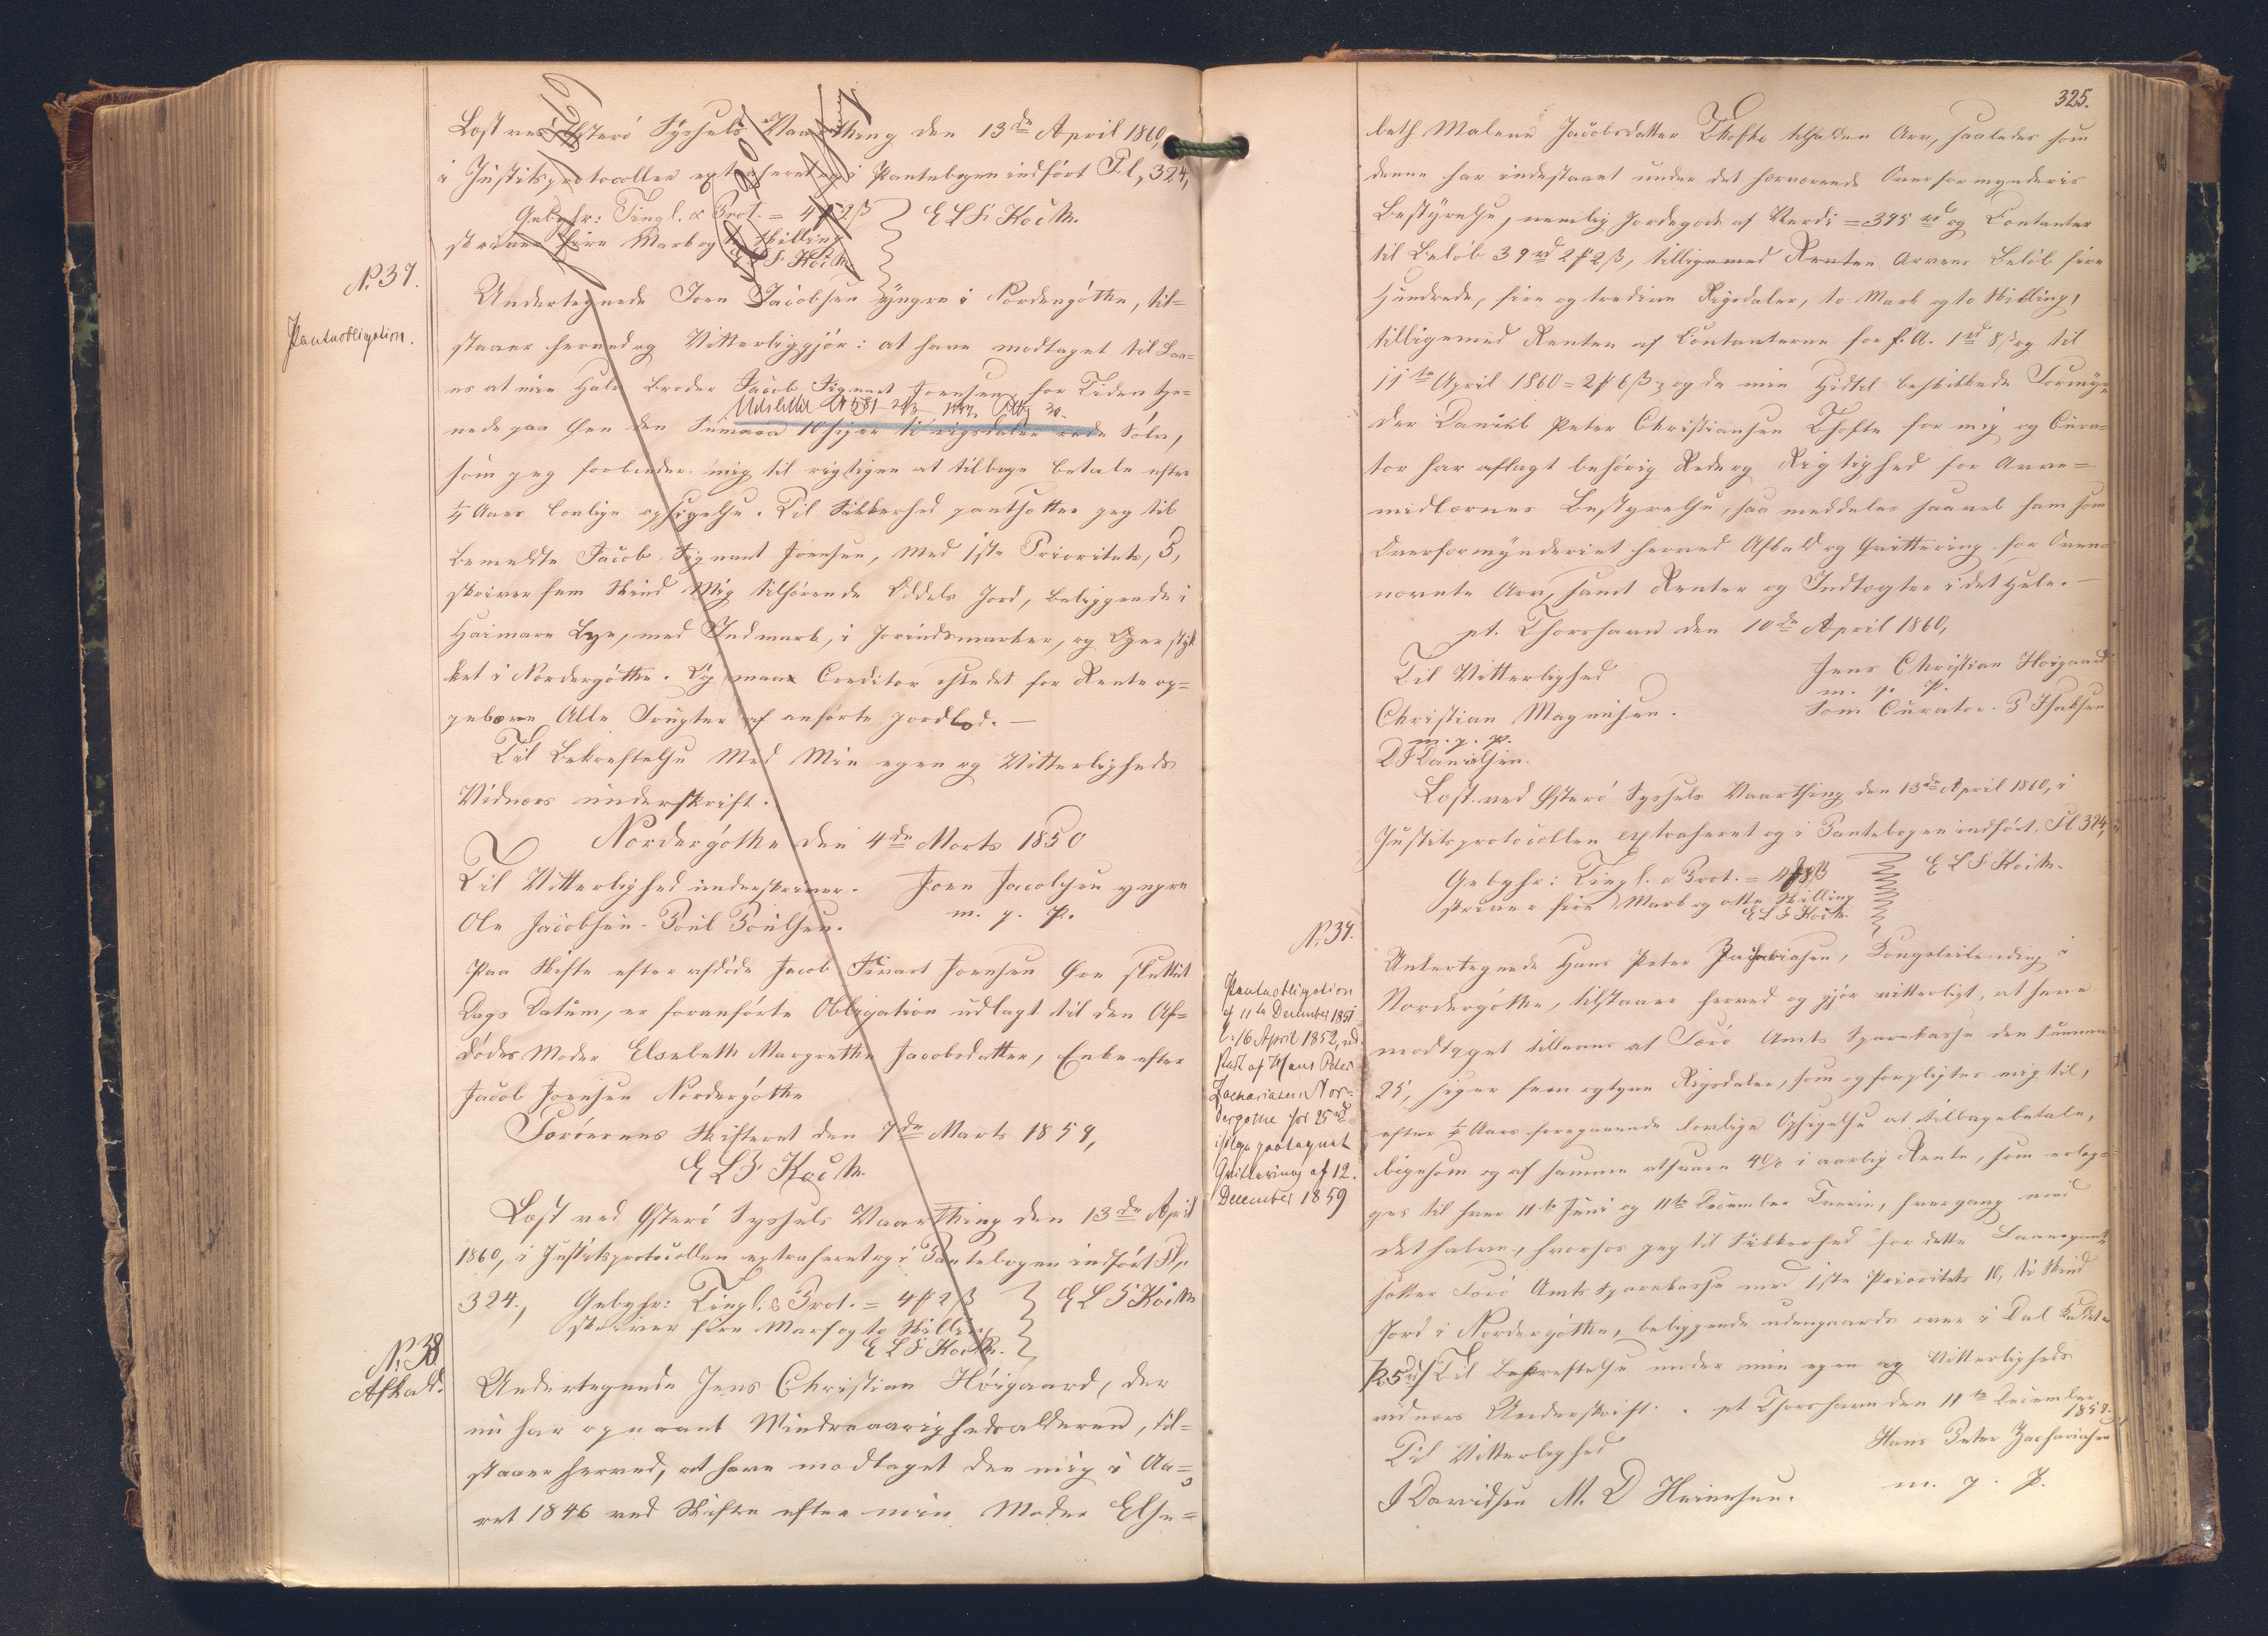 Læst ved Østerö Syssels Vaarthing den 13de April 1860,
i Justitsprotocollen extraheret og i Pantebogen indført Fl, 324,
Gebyhr: Tingl. & Prot. = 4 ß ELF Koch.
skriver fire Mark og Skilling
ELF Koch
N. 37.
Pantobligation.
Undertegnede Joen Jacobsen yngre i Nordregöthe, til-
staaer herved og Vitterliggjör: at have modtaget til Laa-
ns at min Halv Broder Jacob Joensen for Tiden tje-
nede paa Øen den Summa 10 siger ti rigsdaler rede Sölv,
som jeg forbinder mig til rigtigen at tilbage betale efter
¼ Aars lovlige opsigelse. Til Sikkerhed pantsætter jeg til
bemeldte Jacob Joensen, Med 1ste Prioritets, 5,
skriver fem Skind Mig tilhörende Oddels Jord, beliggende i
Bye, med Indmark, i
ket i Nordregöthe. Creditor istedet for Rente op-
pebære Alle Frugter af anförte jordlod. —
Til Bekræftelse Med Min egen og Vitterligheds
Vidners underskrift.
Nordregöthe den 4de Marts 1850
Til Vitterlighed underskriver. Joen Jacobsen yngre
Ole Jacobsen. Poul Poulsen. m. p. P.
Paa Skifte efter afdöde Jacob Joensen sluttet
Dags Datum, er foranförte Obligation udlagt til den Af-
dödes Moder Elsebeth Margrethe Jacobsdatter, Enke efter
Jacob Joensen Nordregöthe
Færöernes Skifteret den 7de Marts 1859,
ELF Koch.
Læst ved Østerö Syssels Vaarthing den 13de April
1860, i Justitsprotocollen extraheret og i Pantebogen indført Fl,
324., Gebyhr: Tingl. & Prot. = 4 2 ß ELF Koch
skriver fire Mark og to Skilling
ELF Koch.
N. 38
Afkald.
Undertegnede Jens Christian Höigaard, der
nu har opnaaet Mindreaarighedsalderen, til-
staaer herved, at have modtaget den mig i Aa-
ret 1846 ved Skifte efter min Moder Else-
325.
beth Malene Jacobsdatter Thofte tilfaldne Arv, saaledes som
denne har indestaaet under det herværende Overformynderis
Bestyrelse, nemlig Jordegods af Værdi = 395 rd og Contanter
til Belöb 39 rd 2 2 ß, tilligemed Renten Arvens Belöb fire
Hundrede, fire og tredive Rigsdaler, to Mark og to Skilling,
tilligemed Renten af Contanterne for f. A. 1 rd 8 ß og til
11te April 1860 = 2 6 ß; og da min Hidtil beskikkede Formyn-
der Daniel Peter Christiansen Thofte for mig og Cura-
tor har aflagt behörig Rede og Rigtighed for Arve-
midlernes Bestyrelse, saa meddeles saavel ham som
Overformynderiet herved Afkald og Qvittering for Oven-
nævnte Arv, samt Renter og Indtægter i det Hele. —
pt. Thorshavn den 10de April 1860,
Til Vitterlighed Jens Christian Hoigaard
m. p. P.
Christian Magnusen. Som Curator. P Isaksen
m. p. P.
D J Danielsen.
Læst ved Østerö Syssels Vaarthing den 13de April 1860, i
Justitsprotocollen extraheret og i Pantebogen indført, Fl 324,
Gebyhr: Tingl. & Prot. = 4 8 ß ELF Koch.
skriver fire Mark og otte Skilling
ELF Koch.
N. 39.
Pantobligation
af 11te December 1851
l. 16 April 1852, ud-
stædt af Hans Peter
Zachariasen Nor-
dregöthe for 25 rd
ifölge paategnet
Qvittering af 12.
December 1859
Undertegnede Hans Peter Zachariasen, Kongsleilending i
Nordregöthe, tilstaaer herved og gjör vitterligt, at have
modtaget tillaans af Færö Amts Sparekasse den Summa
25, siger fem og tyve Rigsdaler, som og forpligter mig til,
efter ¼ Aars foregaaende lovlige Opsigelse at tilbagebetale,
ligesom og af samme atsvare 4% i aarlig Rente, som erlæg-
ges til hver 11te Juni og 11te December Termin, hvergang med
det halve, hvorfor jeg til Sikkerhed for dette Laan pant-
sætter Færö Amts Sparekasse med 1ste Prioritets 10, ti Skind
Jord i Nordregöthe, beliggende udengaards over i Dal
Til bekræftelse under min egen og Vitterligheds
vidners Underskrift. pt Thorshavn den 11te December
Til Vitterlighed Hans Peter Zachariasen
J Davidsen M. D Heinesen. m. p. P.